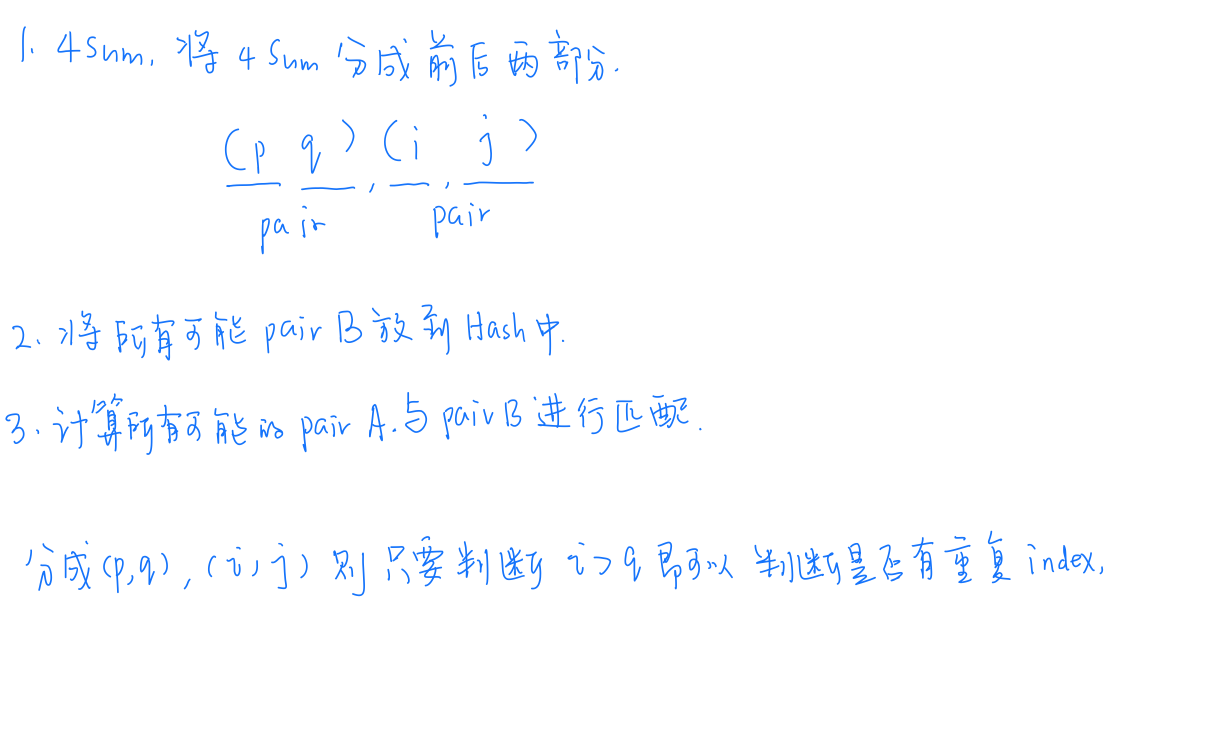 1. 4Sum, 将 4 Sum 分成前后两部分.
(p q) (i j)
pair pair
2. 将所有可能 pair B 放到 Hash 中.
3. 计算所有可能的 pair A. 与 pair B 进行匹配.
分成(p,q), (i,j) 则只要判断 i>q 即可以判断是否有重复 index,